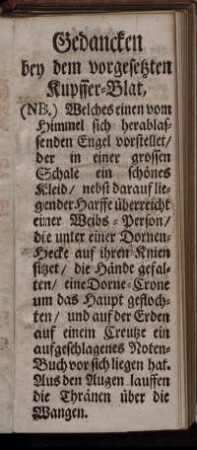 Gedancken
bey dem vorgesetzten
Kupffer-Blat,
(NB.) Welches einen vom
Himmel sich herablas-
senden Engel vorstellet/
der in einer grossen
Schale ein schönes
Kleid/ nebst darauf lie-
gender Harffe überreicht
einer Weibs-Person/
die unter einer Dornen-
Hecke auf ihren Knien
sitzet/ die Hände gefal-
ten/ eine Dorne-Crone
um das Haupt gefloch-
ten/ und auf der Erden
auf einem Creutze ein
aufgeschlagenes Noten-
Buch vor sich liegen hat.
Aus den Augen lauffen
die Thränen über die
Wangen.